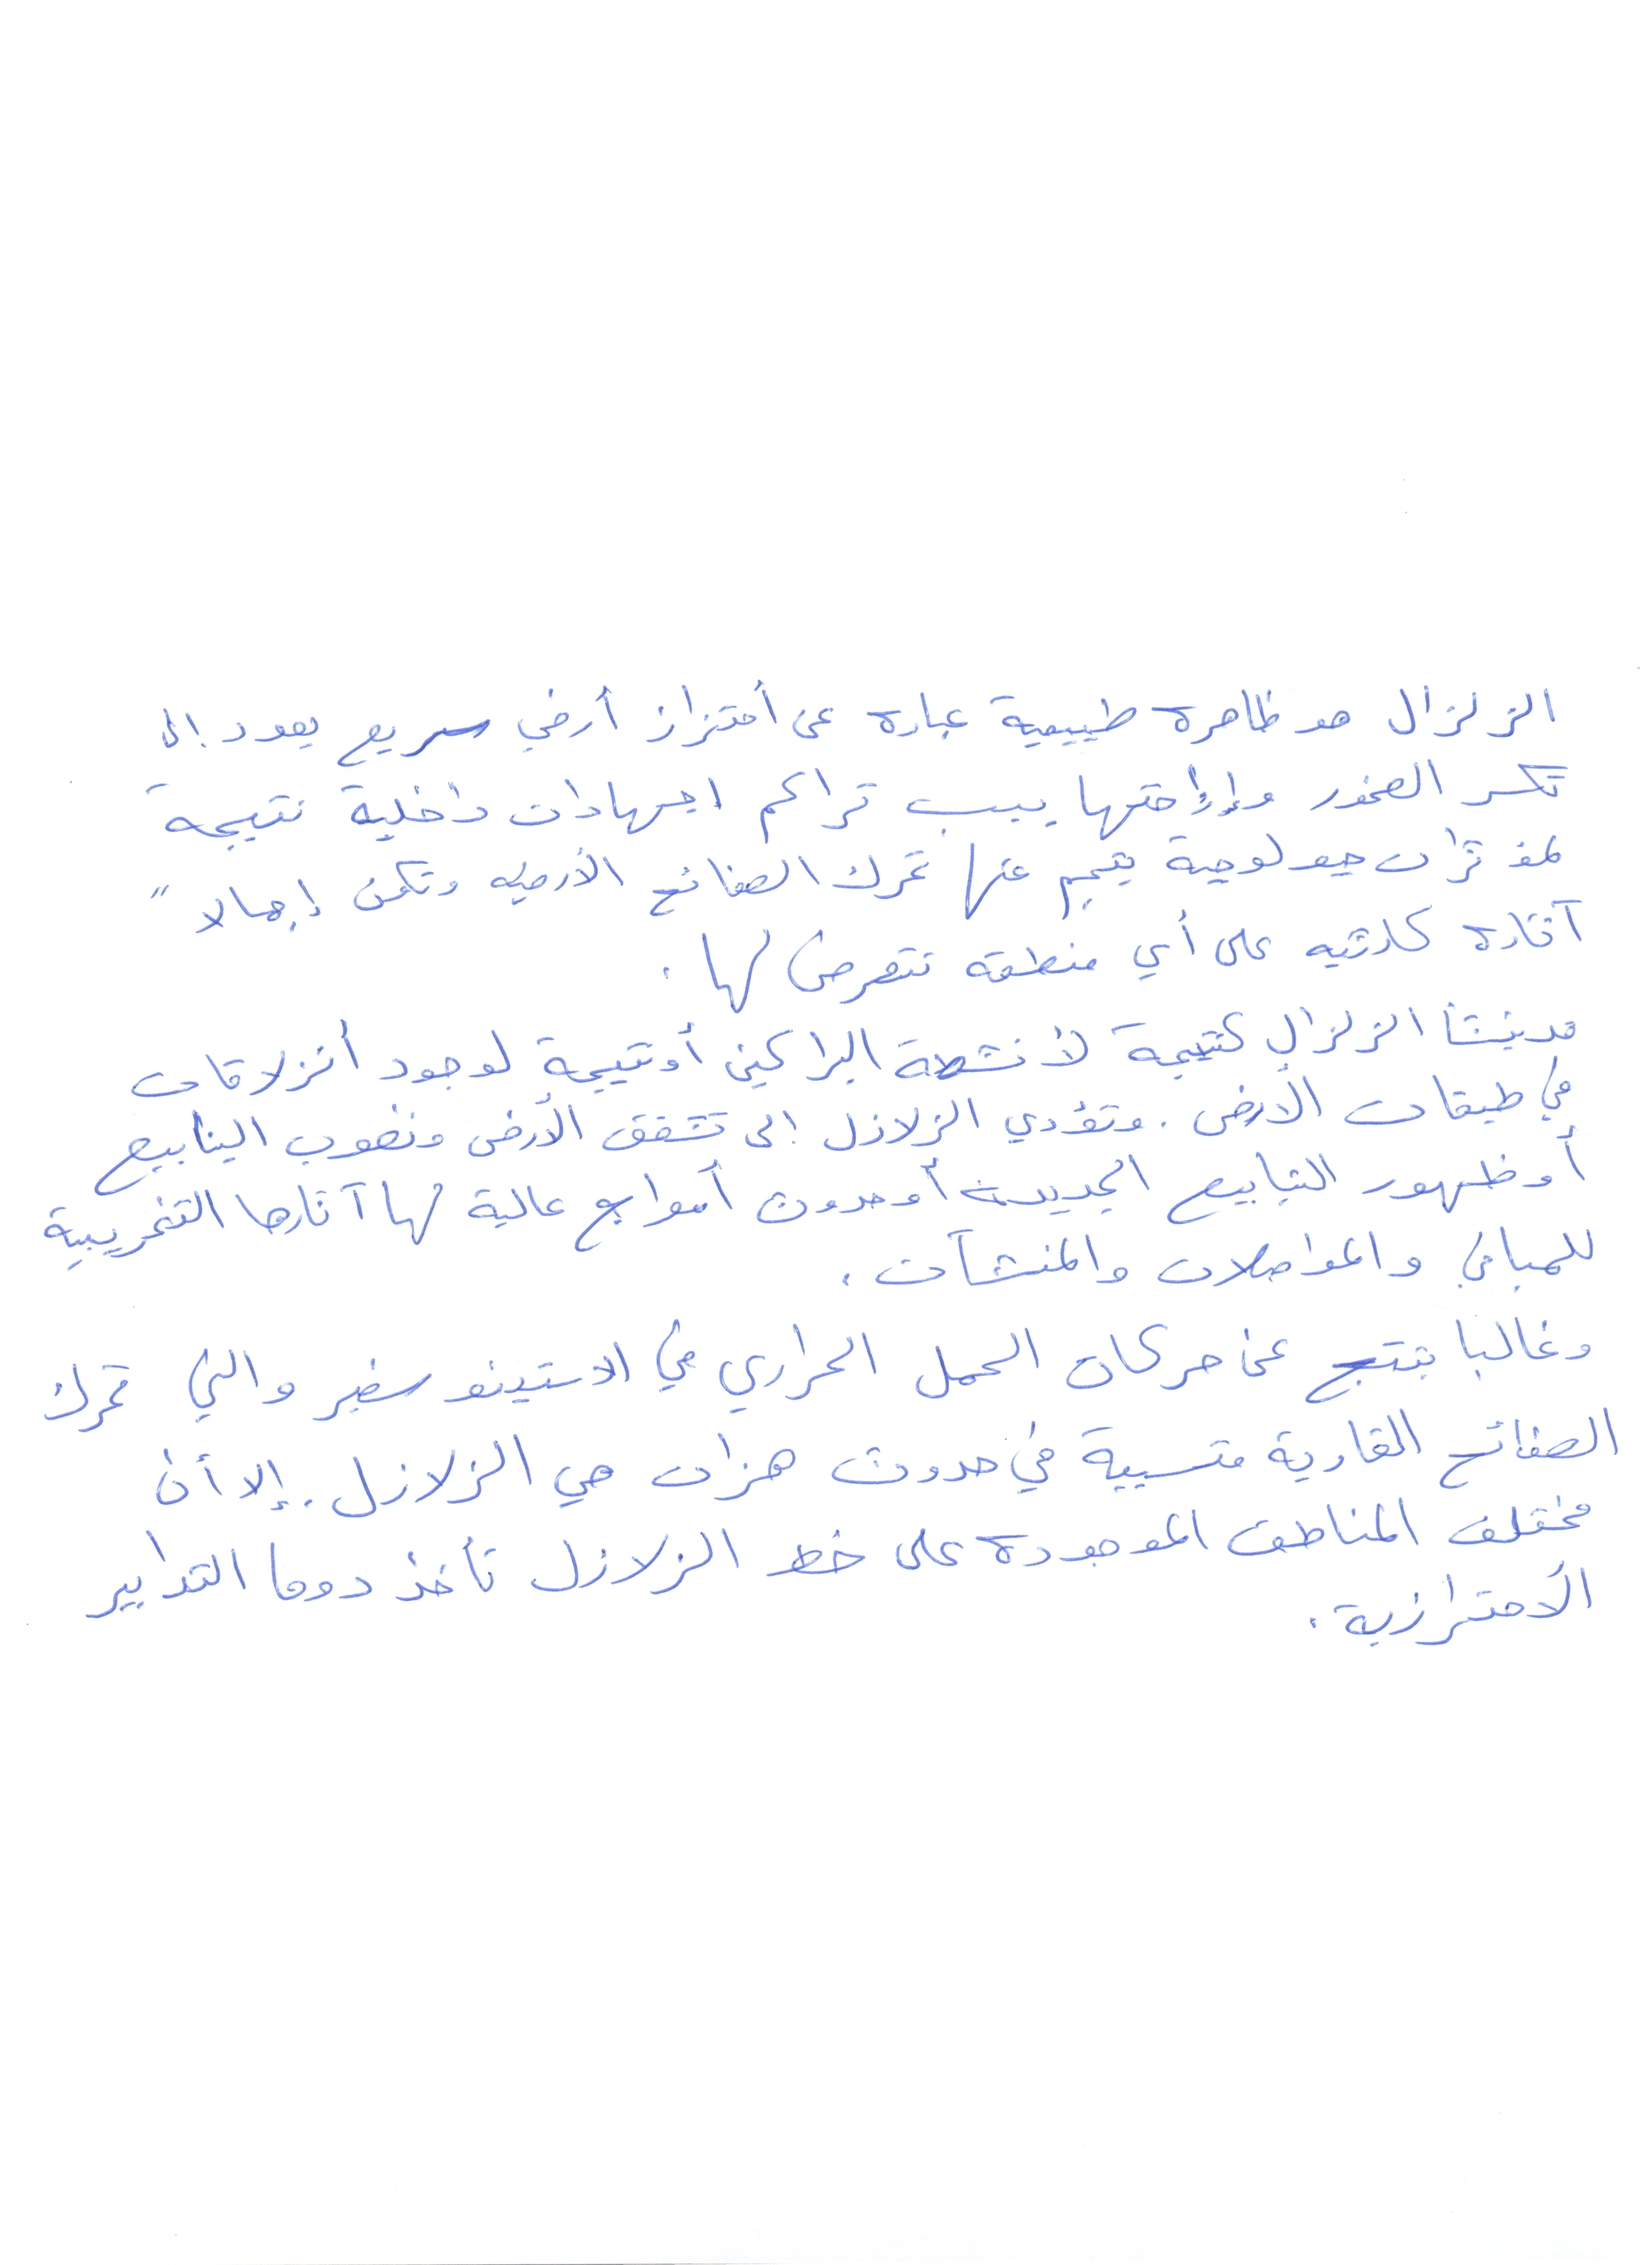 الزلزال هو ظاهرة طبيعية عبارة عن أهتزاز أرضي سريع يعود إلى
تكسر الصخور وإزاحتها بسبب تراكم اجهادات داخلية نتيجة
لمؤثرات جيولوجية ينجم عنها تحرك الصفائح الأرضيه وتكون إجمالا"
آثاره كارثيه على أي منطقه تتعرض لها .
قد ينشأ الزلزال كنتيجة لأنشطة البراكين أو نتيجة لوجود أنزلاقات
في طبقات الأرض . وتؤدي الزلازل إلى تشقق الأرض ونضوب الينابيع
أو ظهور الينابيع الجديدة أو حدوث أمواج عالية لها آثارها التخريبية
للمباني والمواصلات والمنشآت .
وغالبا ينتج عن حركات الحمل الحراري في الاستينوسفير والتي تحرك
الصفائح القارية متسببة في حدوث هزات هي الزلازل . إلا أن
مختلف المناطق الموجودة على خط الزلازل تأخذ دوما التدابير
الأحترازية .